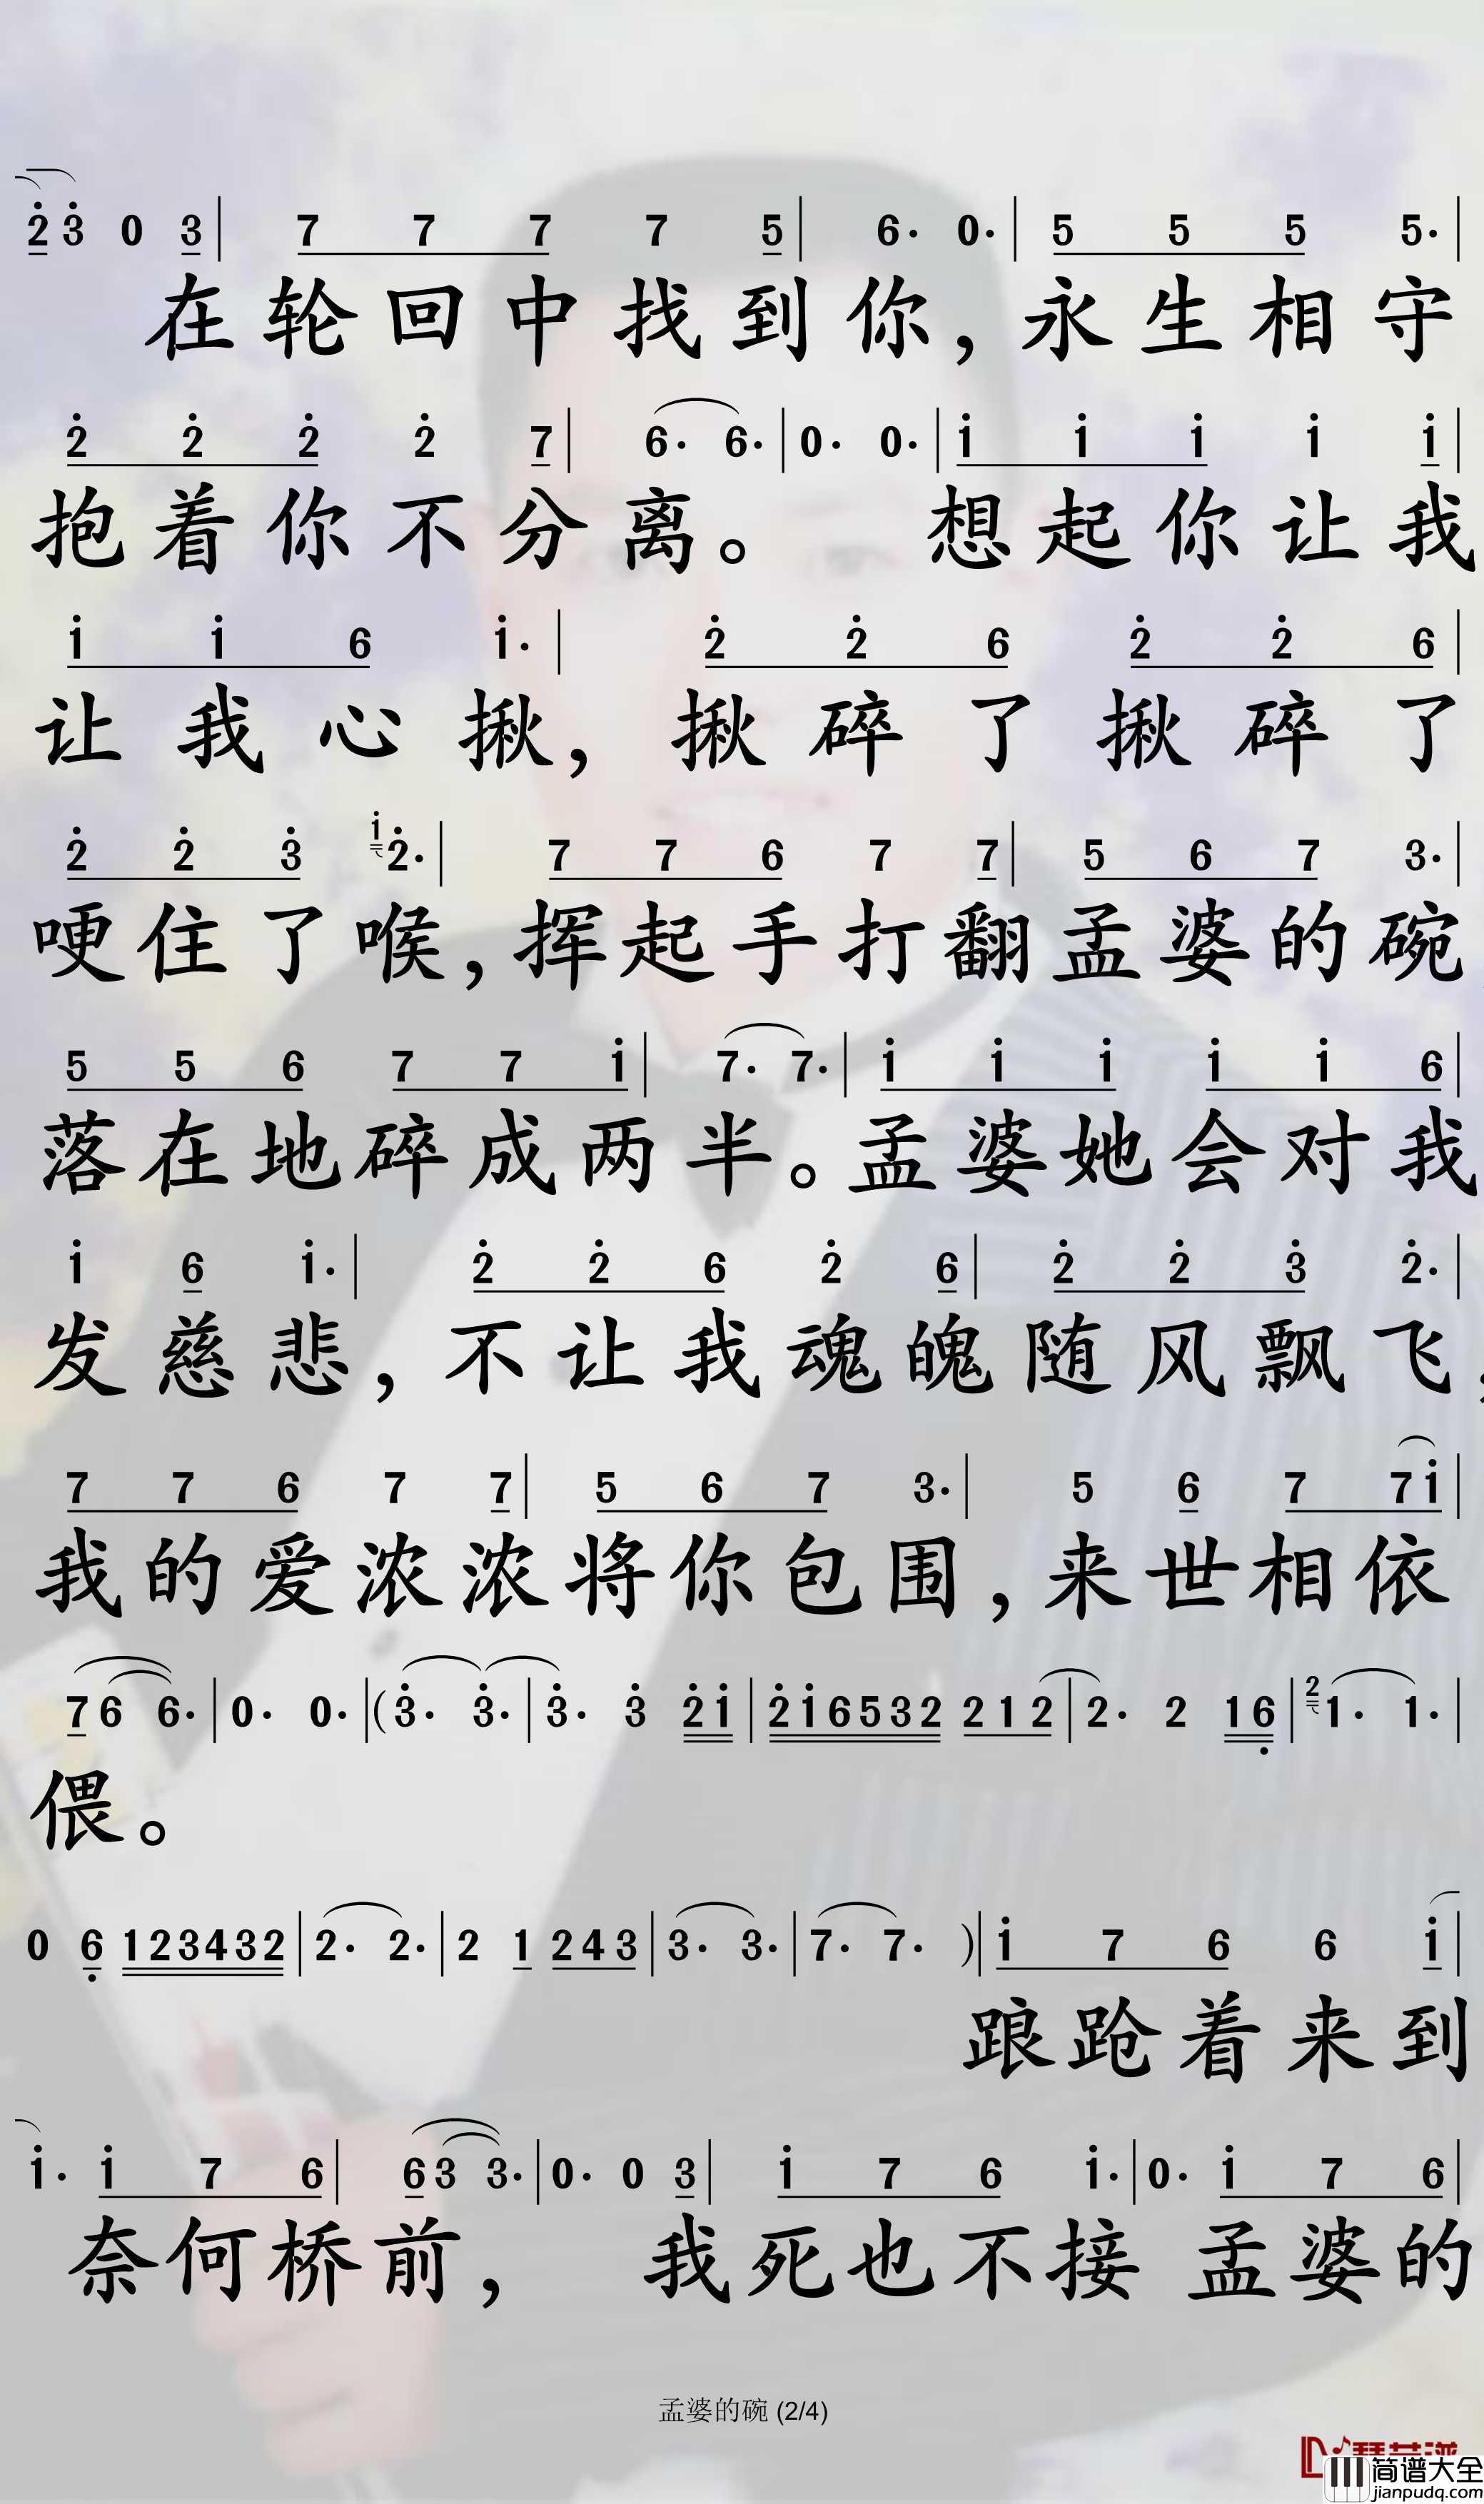 2̇ 3̇ 0 3 | 7 7 7 7 5 | 6· 0· | 5 5 5 5· |
在轮回中找到你,永生相守
2̇ 2̇ 2̇ 2̇ 7 | 6· 6· | 0· 0· | 1̇ 1̇ 1̇ 1̇ 1̇ |
抱着你不分离。 想起你让我
1̇ 1̇ 6 1̇· | 2̇ 2̇ 6 2̇ 2̇ 6 |
让我心揪,揪碎了揪碎了
2̇ 2̇ 3̇ 1̇ 2̇· | 7 7 6 7 7 | 5 6 7 3· |
哽住了喉,挥起手打翻孟婆的碗
5 5 6 7 7 1̇ | 7· 7· | 1̇ 1̇ 1̇ 1̇ 1̇ 6 |
落在地碎成两半。孟婆她会对我
1̇ 6 1̇· | 2̇ 2̇ 6 2̇ 6 | 2̇ 2̇ 3̇ 2̇· |
发慈悲,不让我魂魄随风飘飞,
7 7 6 7 7 | 5 6 7 3· | 5 6 7 7 1̇ |
我的爱浓浓将你包围,来世相依
7 6 6· | 0· 0· | (3̇· 3̇· | 3̇· 3̇ 2̇ 1̇ | 2̇ 1̇ 6 5 3 2 2 1 2 | 2· 2 1 6̣ | 2 1· 1· |
偎。
0 6̣ 1 2 3 4 3 2 | 2· 2· | 2 1 2 4 3 | 3· 3· | 7· 7· ) | 1̇ 7 6 6 1̇ |
踉跄着来到
1̇· 1̇ 7 6 | 6 3 3· | 0· 0 3 | 1̇ 7 6 1̇· | 0· 1̇ 7 6 |
奈何桥前, 我死也不接 孟婆的
孟婆的碗 (2/4)
简谱大全
jianpudq.com